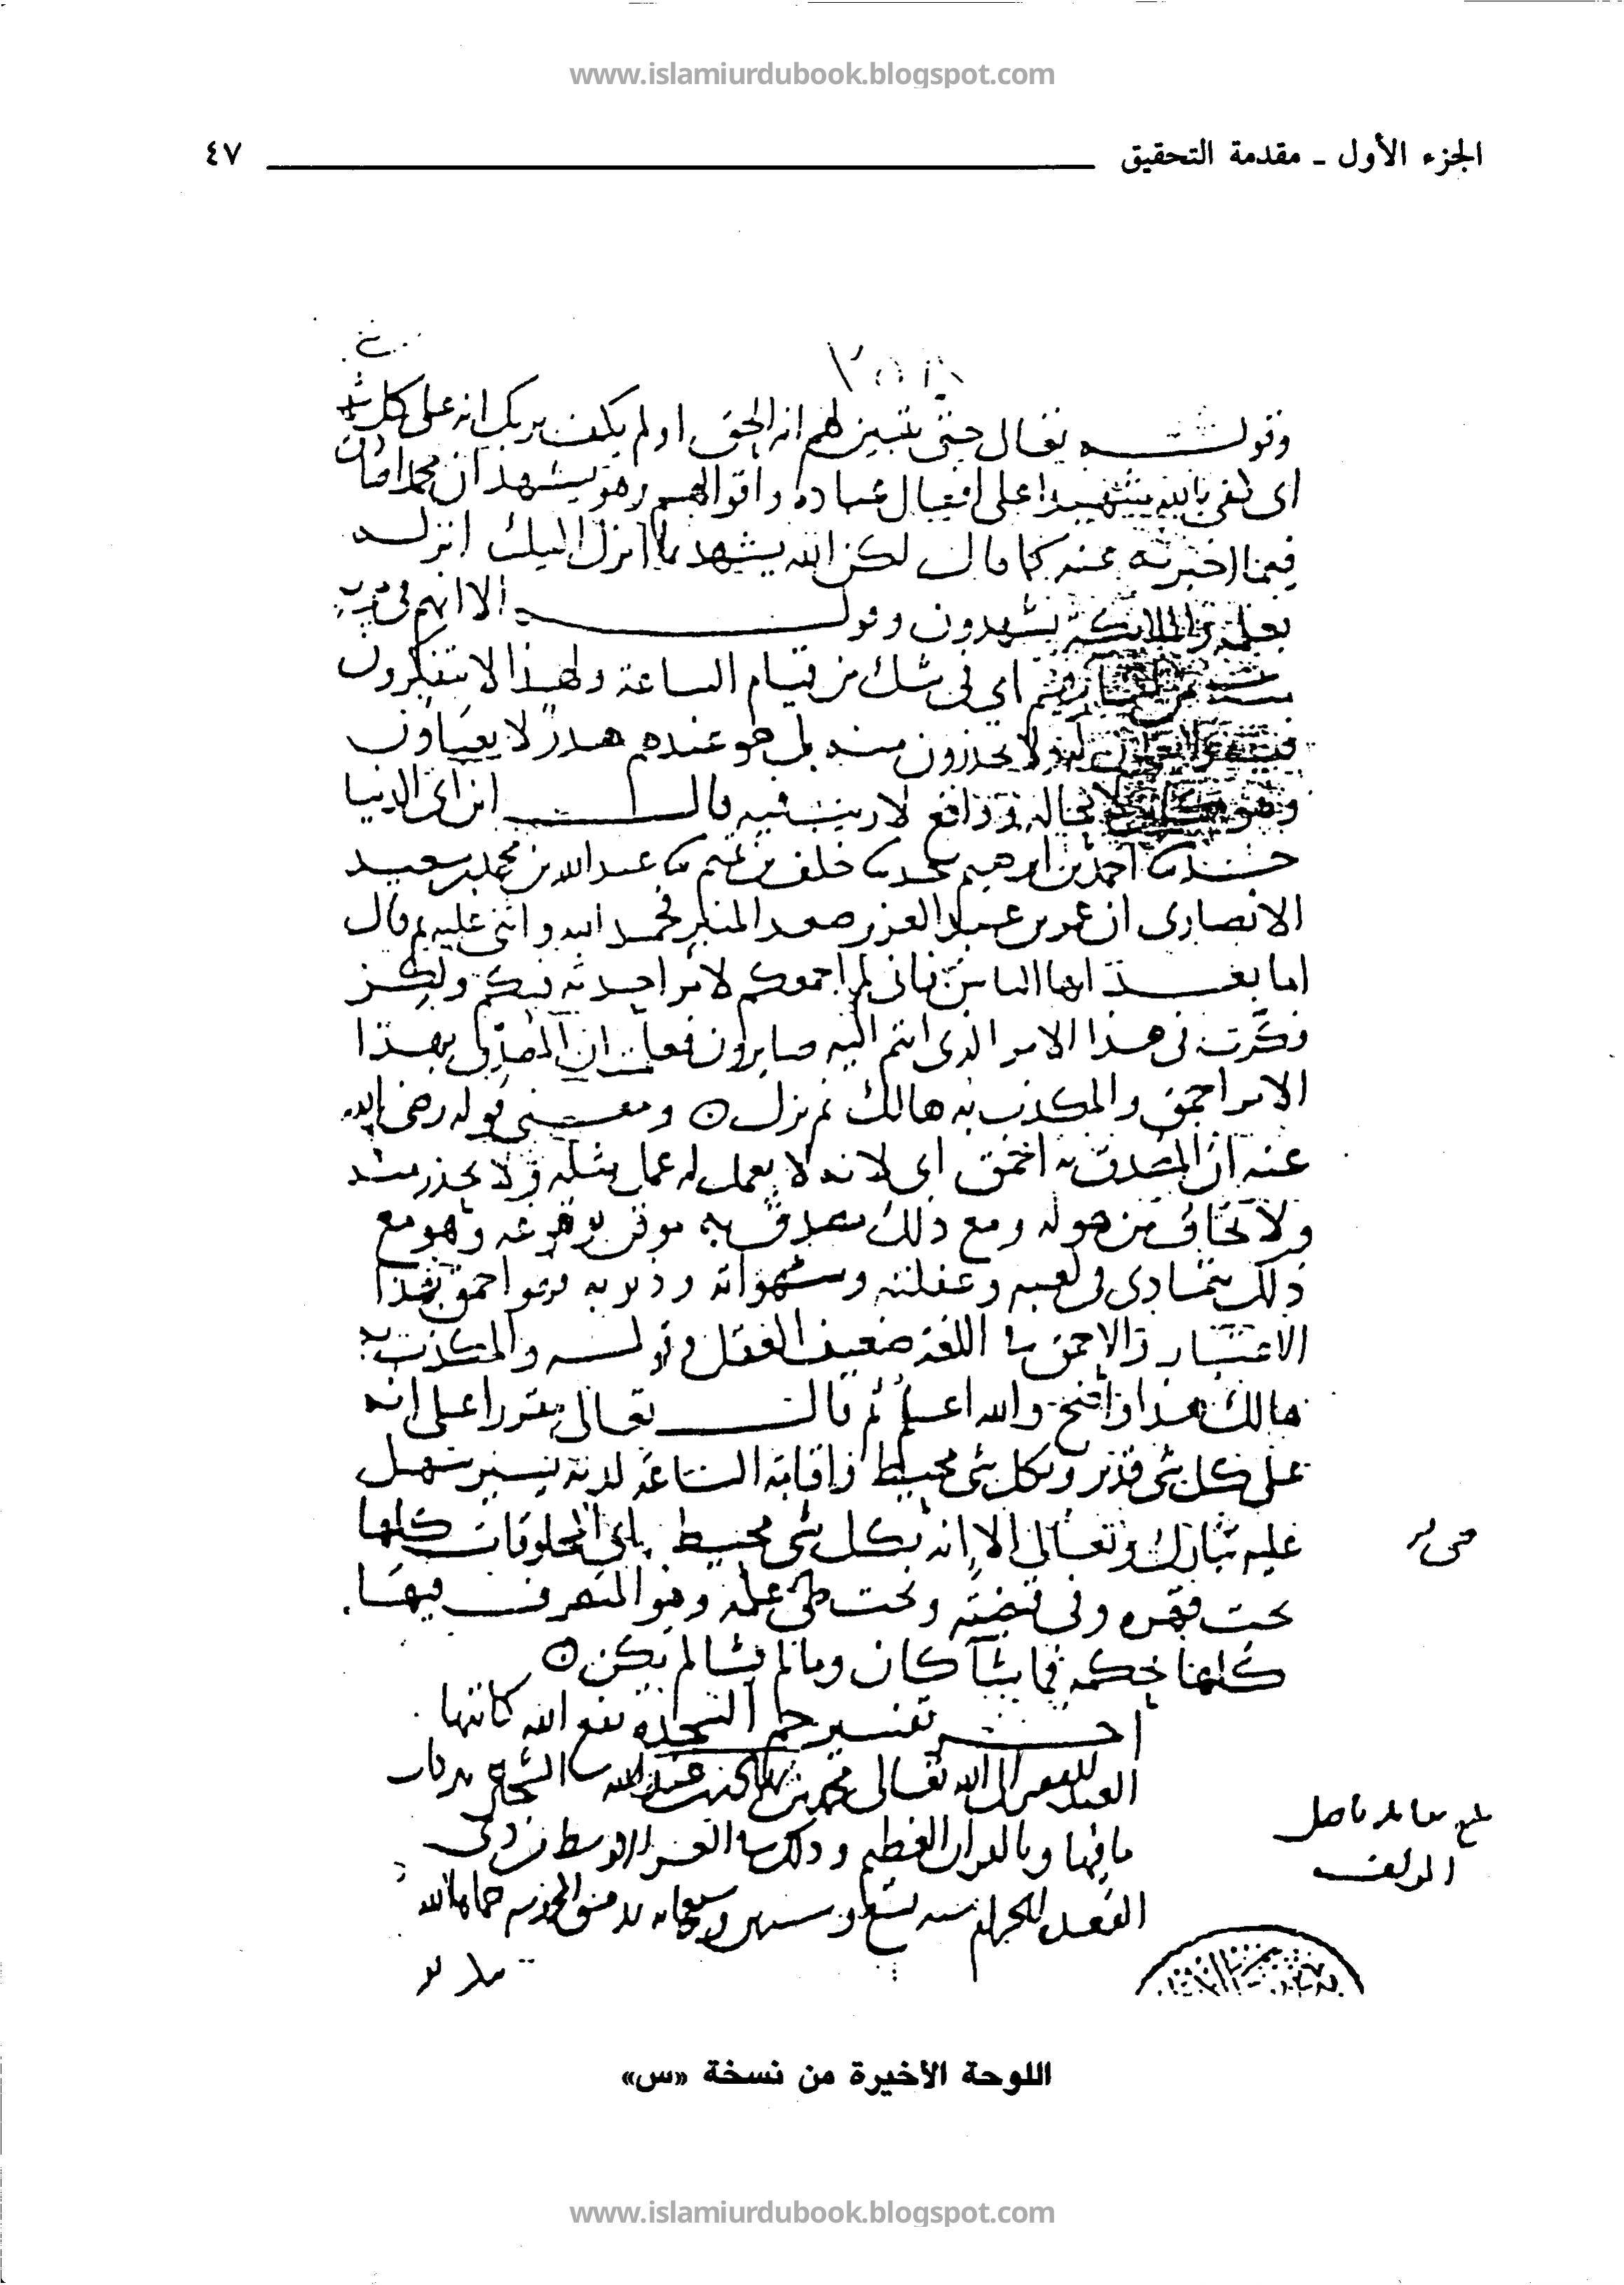 www.islamiurdubook.blogspot.com
الجزء الأول - مقدمة التحقيق ٤٧
وقوله تعالى حتى يتبين لهم انه الحق اولم يكف بربك انه على كل
اى كفى بالله شهيدا على افعال عباده واقوالهم وهو يشهد ان محمدا
فيما اخبر به عنه كما قال لكن الله يشهد بما انزل اليك انزله
بعلمه والملائكة يشهدون وقوله الا انهم فى مرية
من لقاء ربهم اى فى شك من قيام الساعة ولهذا لا يتفكرون
لا يحذرون منه بل هو عندهم هدر لا يعباون
وهو لا محالة وواقع لا ريب فيه قال ابن ابى الدنيا
احمد بن ابرهيم خلف بن تميم عبد الله بن محمد بن سعيد
الانصارى ان عمر بن عبد العزيز صعد المنبر فحمد الله واثنى عليه ثم قال
اما بعد ايها الناس فانى لم اجمعكم لامر احدثه فيكم ولكن
فكرت فى هذا الامر الذى انتم اليه صايرون فعلمت ان المصدق بهذا
الامر احمق والمكذب به هالك ثم نزل ومعنى قوله رضى الله
عنه ان المصدق به احمق اى لانه لا يعمل له عمل مثله ولا يحذر منه
ولا يخاف من هوله ومع ذلك مصدق به موقن بوقوعه وهو مع
ذلك يتمادى فى لعبه وغفلته وشهواته وذنوبه فهو احمق بهذا
الاعتبار والاحمق فى اللغة ضعيف العقل وقوله والمكذب به
هالك هذا واضح والله اعلم ثم قال تعالى مقررا على انه
على كل شى قدير وبكل شى محيط واقامة الساعة لديه يسير سهل
عليه تبارك وتعالى الا انه بكل شى محيط اى المخلوقات كلها
تحت قهره وفى قبضته وتحت طى علمه وهو المتصرف فيها
كلها بحكمه فما شا كان وما لم يشا لم يكن
اخر تفسير حم السجدة نفع الله كاتبها
العبد الفقير الى الله تعالى محمد
ما فيها وبالقران العظيم وذلك العشر الاوسط من ذى
القعدة الحرام سنة تسع و
المولف
اللوحة الأخيرة من نسخة «س»
www.islamiurdubook.blogspot.com